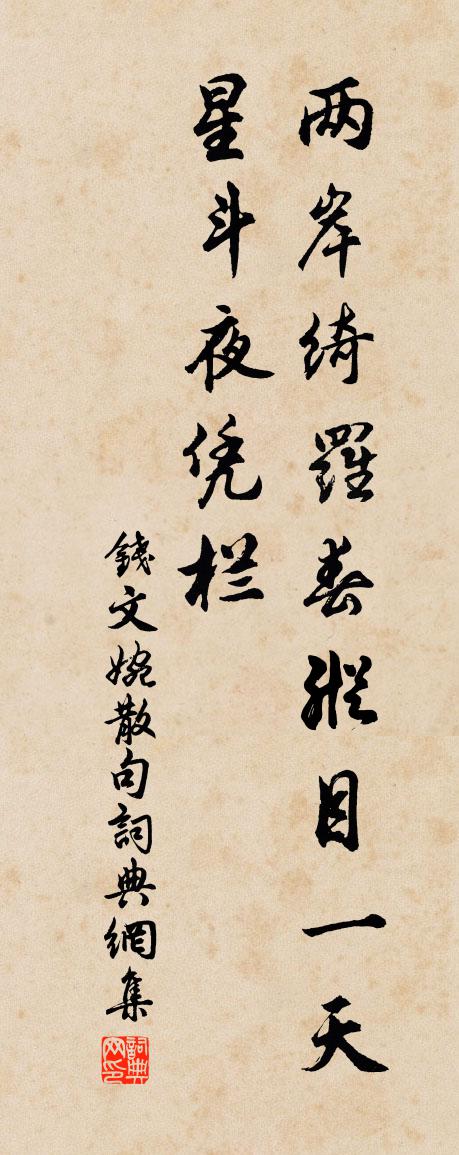 两岸绮羅春縱目一天
星斗夜凭栏
錢文婉散句詞典網集
詞典网印